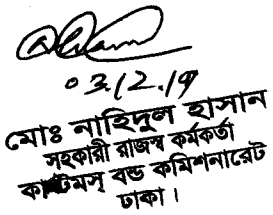 03.12.19
মোঃ নাহিদুল হাসান
সহকারী রাজস্ব কর্মকর্তা
কাস্টমস্ বন্ড কমিশনারেট
ঢাকা।